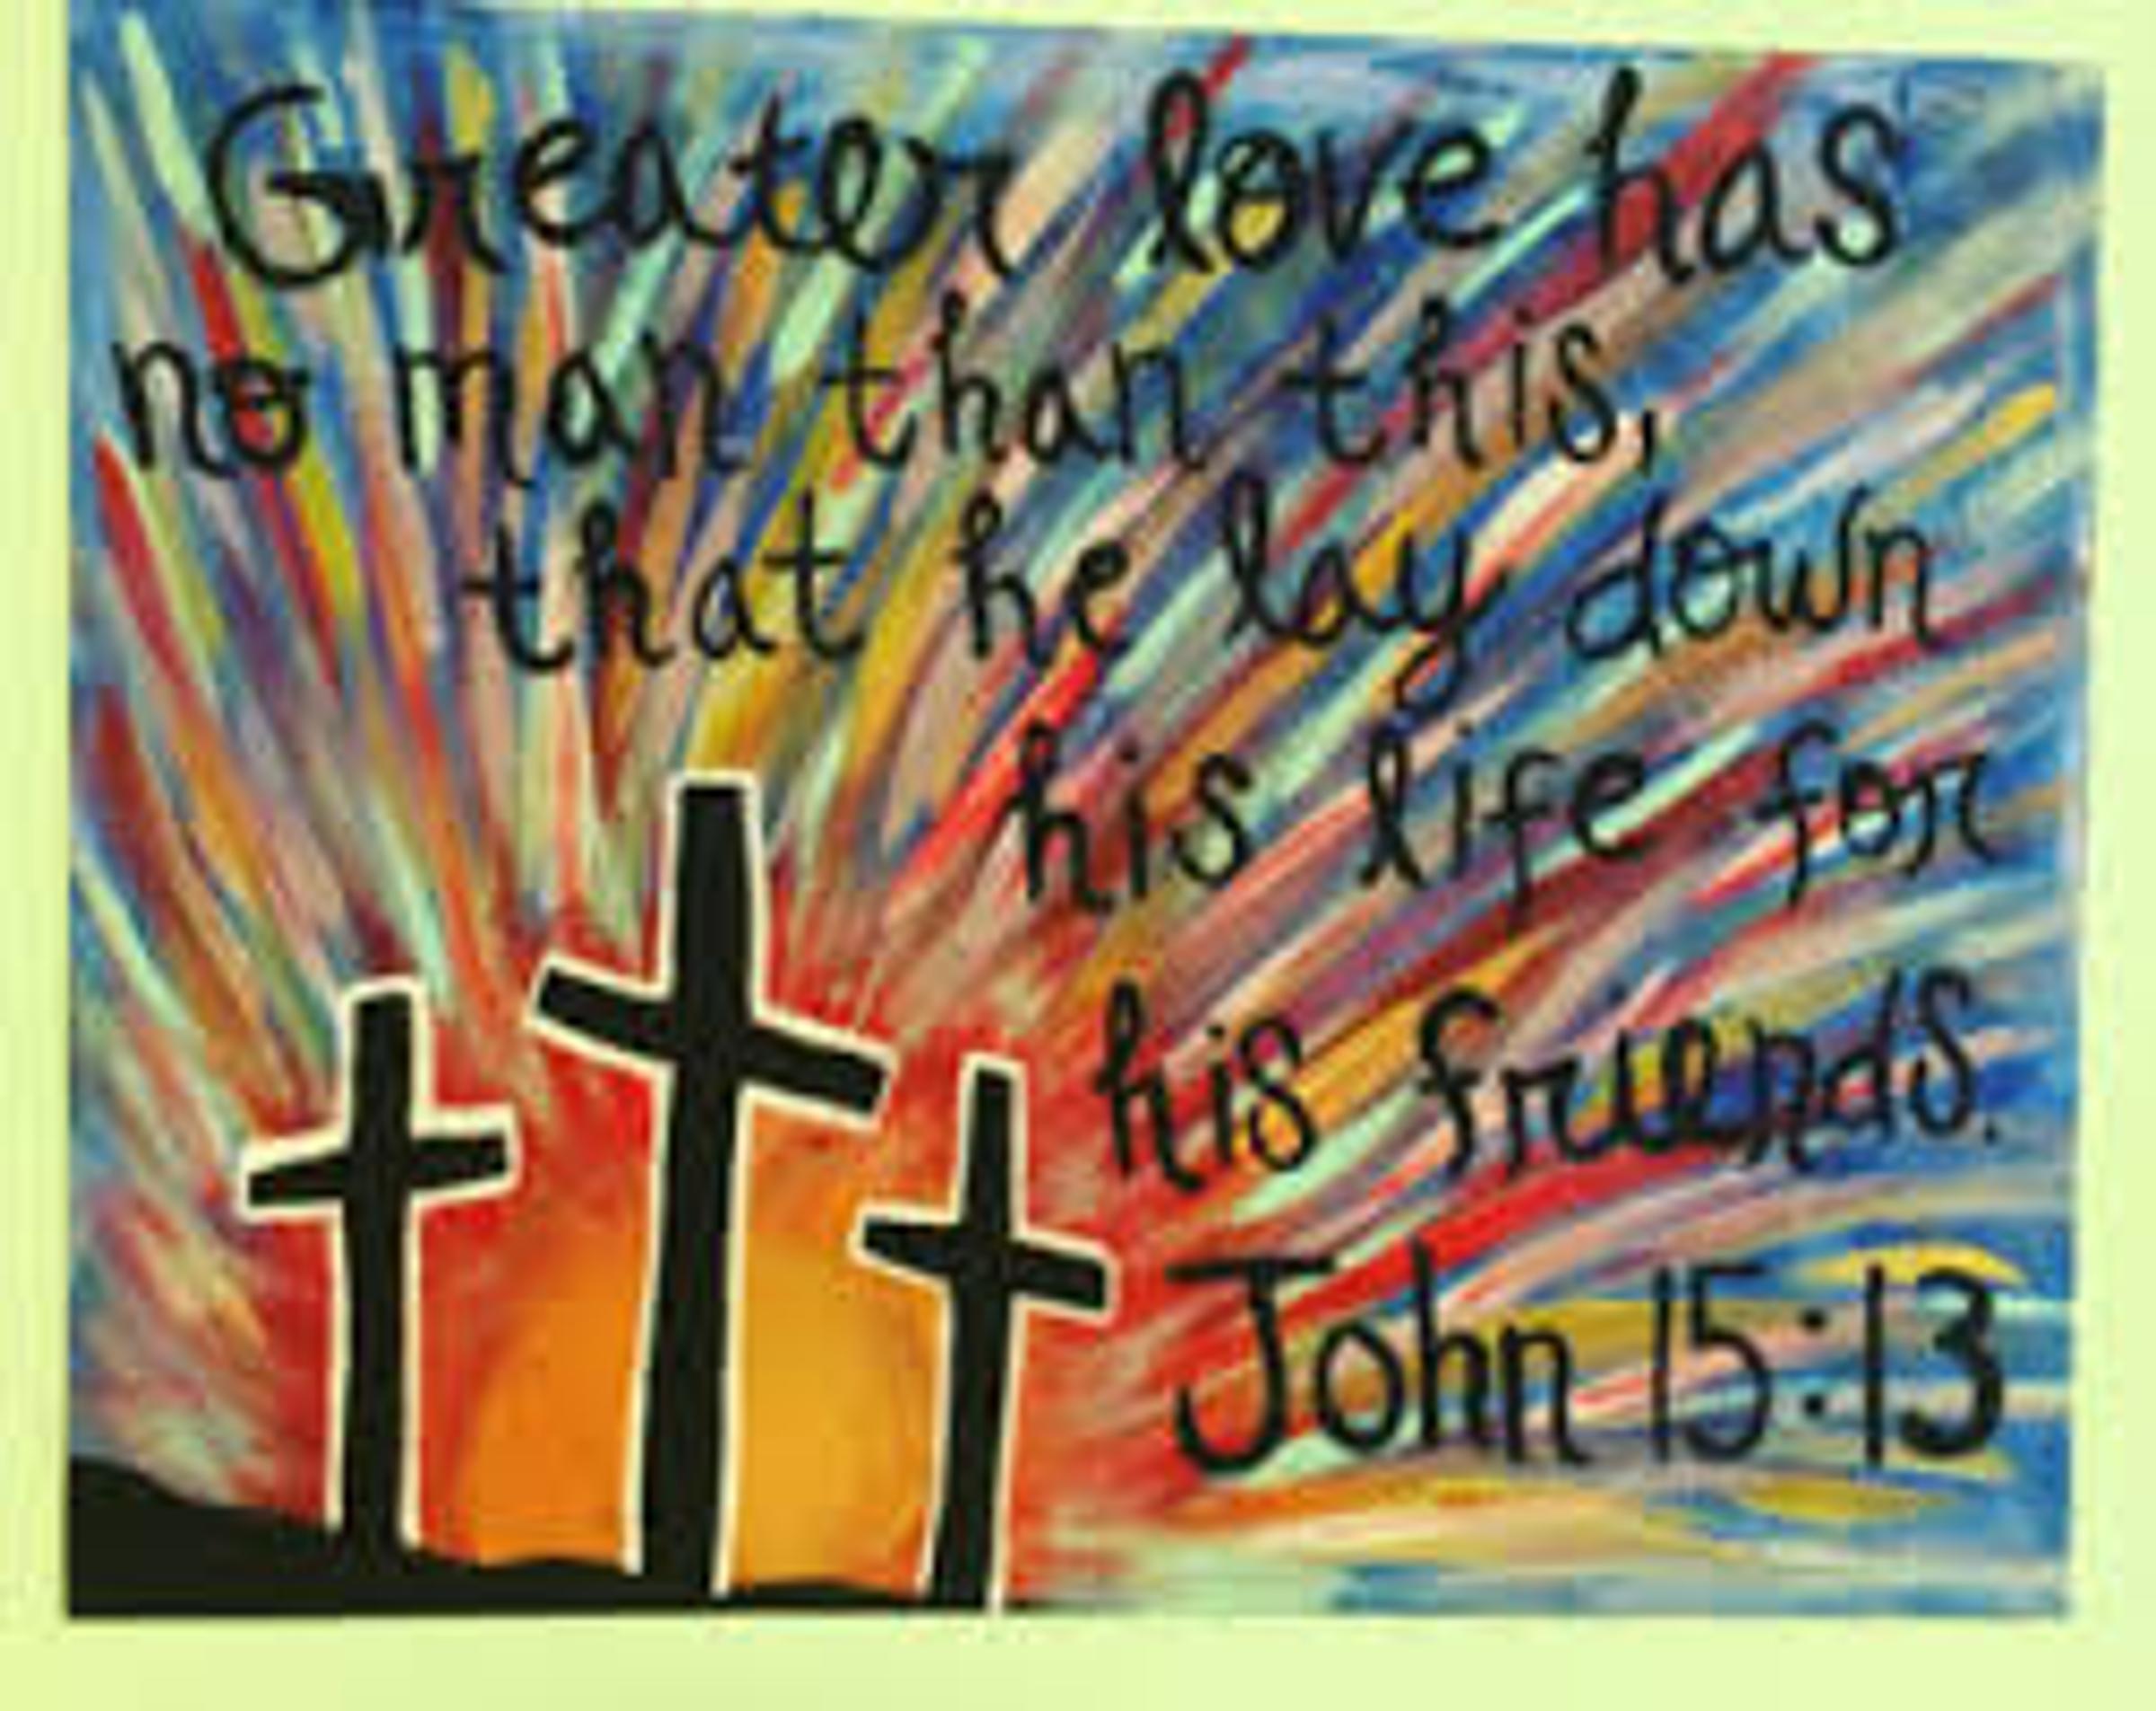 Greater love has
no man than this,
that he lay down
his life for
his friends.
John 15:13